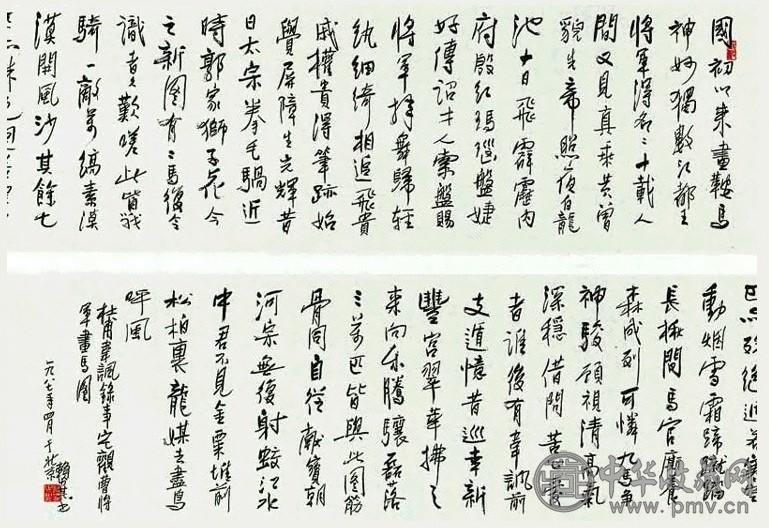 國初以来畫鞍馬
神妙獨數江都王
将军得名三十載人
間又見真乘黄曾
貌先帝照夜白龍
池十日飛霹靂内
府殷红瑪瑙盤婕
妤傳詔才人索盤賜
将军拜舞歸轻
纨细绮相追飛貴
戚權貴得筆跡始
覺屏障生光輝昔
日太宗拳毛騧近
時郭家獅子花今
之新图有二馬復令
識者久歎嗟此皆战
騎一敵萬縞素漠
漠開風沙其餘七
動烟雪霜蹄蹴踏
長楸間馬官廝養
森成列可憐九馬争
神駿顾視清高氣
深穩借問苦心愛
者谁後有韋諷前
支遁憶昔巡幸新
豐宫翠華拂天
来向东騰驤磊落
三萬匹皆與此图筋
骨同自從献寶朝
河宗無復射蛟江水
中君不見金粟堆前
松柏裏龍媒去盡鳥
呼風
杜甫韋諷錄事宅觀曹将
军畫馬图
一九八七年四月于北京
中华收藏网
www.pmv.cn